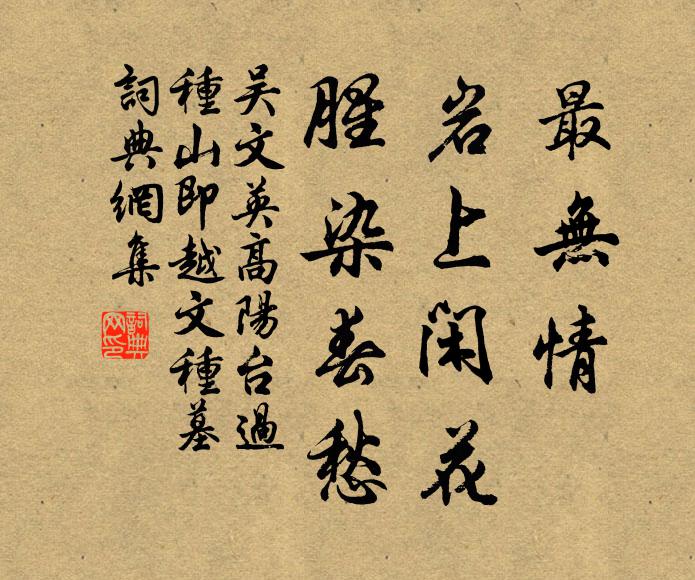 最無情
岩上閑花
腥染春愁
吴文英高陽台過
種山即越文種墓
詞典網集
詞典
网印